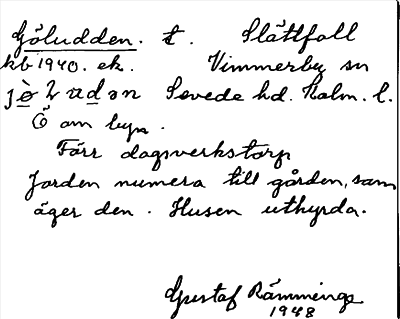 Göludden. t. Slättfall
kb 1940. ek. Vimmerby sn
jö̀ludən Sevede hd. Kalm. l.
Ö om byn.
Förr dagsverkstorp
Jorden numera till gården, som
äger den. Husen uthyrda.
Gustaf Rämminge
1948